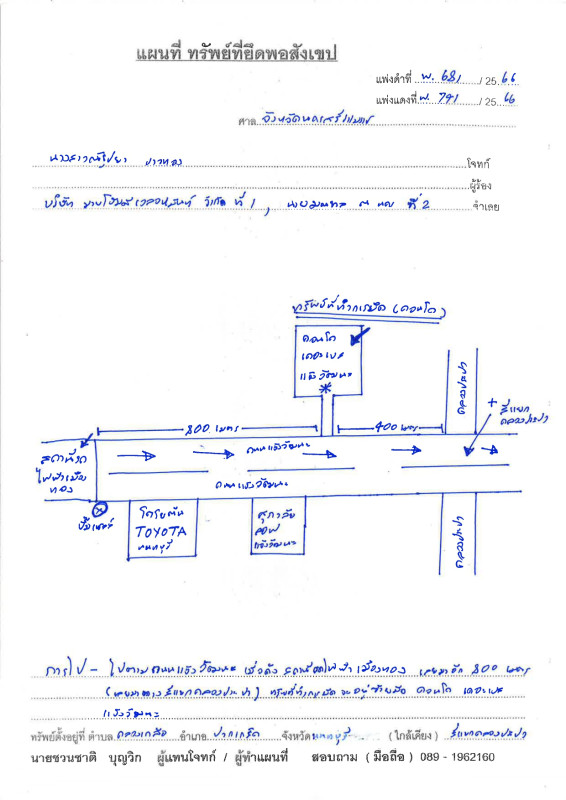 แผนที่ ทรัพย์ที่ยึดพอสังเขป
แพ่งดำที่ พ. 681 / 25 66
แพ่งแดงที่ พ. 791 / 25 66
ศาล จังหวัด
โจทก์
ผู้ร้อง
บริษัท จำกัด ที่ 1 , ที่ 2 จำเลย
ทรัพย์ที่ทำการยึด (คอนโด)
คอนโด
เดอะเบส
แจ้งวัฒนะ
800 เมตร
400 เมตร
คลองประปา
สี่แยก
คลองประปา
สถานีรถ
ไฟฟ้าเมือง
ทอง
ถนนแจ้งวัฒนะ
ถนนแจ้งวัฒนะ
โตโยต้า
TOYOTA
นนทบุรี
ศุภาลัย
ลอฟ
แจ้งวัฒนะ
คลองประปา
การไป - ไปตามถนนแจ้งวัฒนะ เมื่อถึง สถานีรถไฟฟ้าเมืองทอง เลยมาอีก 800 เมตร
(เลยมาทางสี่แยกคลองประปา) ทรัพย์ที่ทำการยึด จะอยู่ซ้ายมือ คอนโด เดอะเบส
แจ้งวัฒนะ
ทรัพย์ตั้งอยู่ที่ ตำบล คลองเกลือ อำเภอ ปากเกร็ด จังหวัด นนทบุรี (ใกล้เคียง) สี่แยกคลองประปา
นายชวนชาติ บุญวิก ผู้แทนโจทก์ / ผู้ทำแผนที่ สอบถาม ( มือถือ ) 089 - 1962160